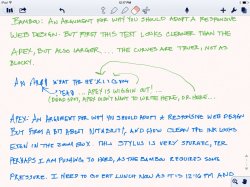 iPad
12:17 PM
BAMBOO: AN ARGUMENT FOR WHY YOU SHOULD ADOPT A RESPONSIVE
WEB DESIGN. BUT FIRST THIS TEST LOOKS CLEANER THAN THE
APEX, BUT ALSO LARGER... THE CURVES ARE TRUER, NOT AS
BLOCKY.
AN ARGU WHAT THE
YEAH ... APEX IS WIGGIN OUT! ...
(DEAD SPOT, APEX DIDN'T WANT TO WRITE HERE, OR HERE...
APEX: AN ARGUMENT FOR WHY YOU SHOULD ADOPT A RESPONSIVE WEB DESIGN
BUT FIRST A BIT ABOUT NOTABILITY, AND HOW CLEAN THE INK LOOKS
EVEN IN THE ZOOM BOX. THIS STYLUS IS VERY SPORATIC, TER
PERHAPS I AM PUSHING TO HARD, AS THE BAMBOO REQUIRED SOME
PRESSURE. I NEED TO GO EAT LUNCH NOW AS IT IS 12:16 PM AND